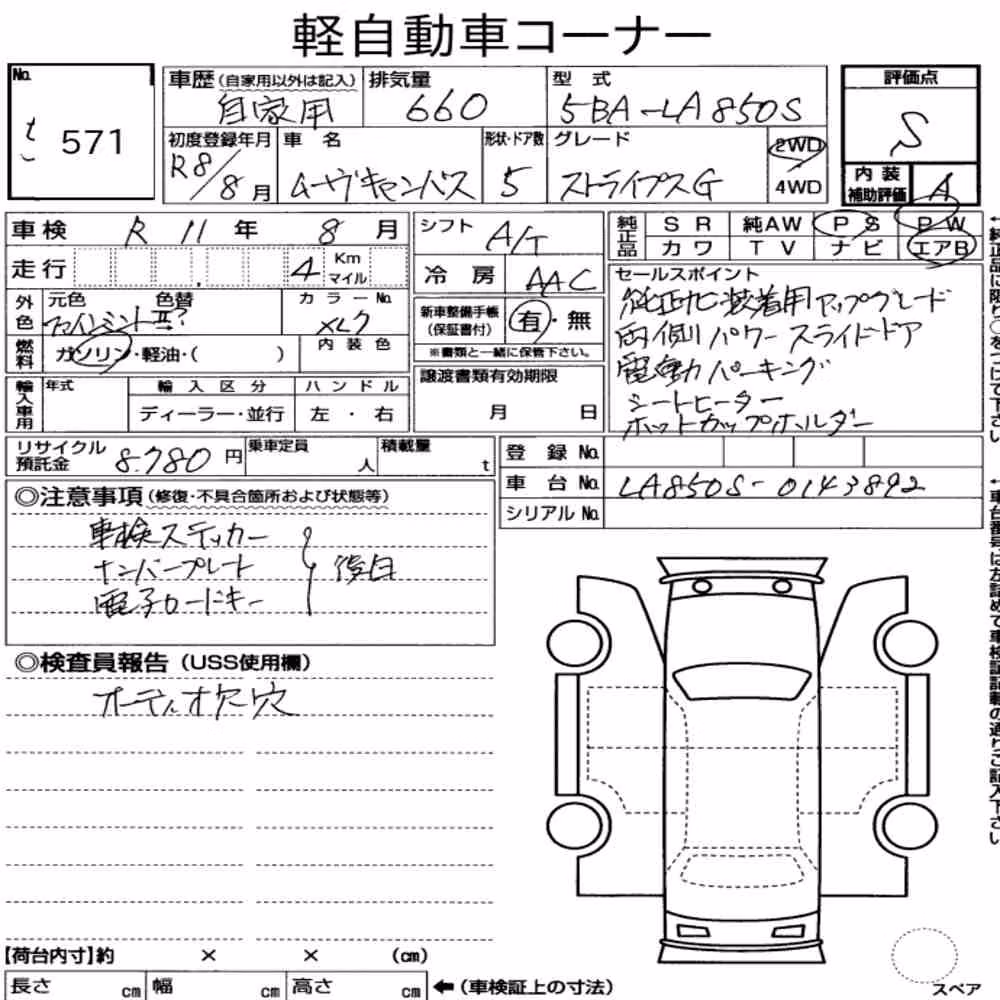 軽自動車コーナー
No. 571
車歴(自家用以外は記入) 自家用
排気量 660
型式 5BA-LA850S
評価点 S
初度登録年月 R8/8月
車名 ムーヴキャンバス
形状・ドア数 5
グレード ストライプスG
2WD
4WD
内装補助評価 A
車検 R 11年 8月
シフト A/T
純正品 SR 純AW PS PW
カワ TV ナビ エアB
走行 4 Km マイル
冷房 AAC
セールスポイント
純正ナビ装着用アップグレード
両側パワースライドドア
電動パーキング
シートヒーター
ホットカップホルダー
外色 元色 色替
ファインミント
カラーNo.
新車整備手帳(保証書付) 有・無
※書類と一緒に保管下さい。
燃料 ガソリン・軽油・( )
内装色
輸入車用 年式 輸入区分 ハンドル
ディーラー・並行 左・右
譲渡書類有効期限
月 日
リサイクル預託金 8.780円
乗車定員 人
積載量 t
登録No.
車台No. LA850S-0143892
シリアルNo.
◎注意事項(修復・不具合箇所および状態等)
車検ステッカー
ナンバープレート 後日
電子カードキー
◎検査員報告(USS使用欄)
オーディオ欠穴
【荷台内寸】約 × × (cm)
長さ cm 幅 cm 高さ cm ←(車検証上の寸法)
スペア
←純正品に限り○をつけて下さい
←車台番号は左詰めで車検証記載の通りご記入下さい